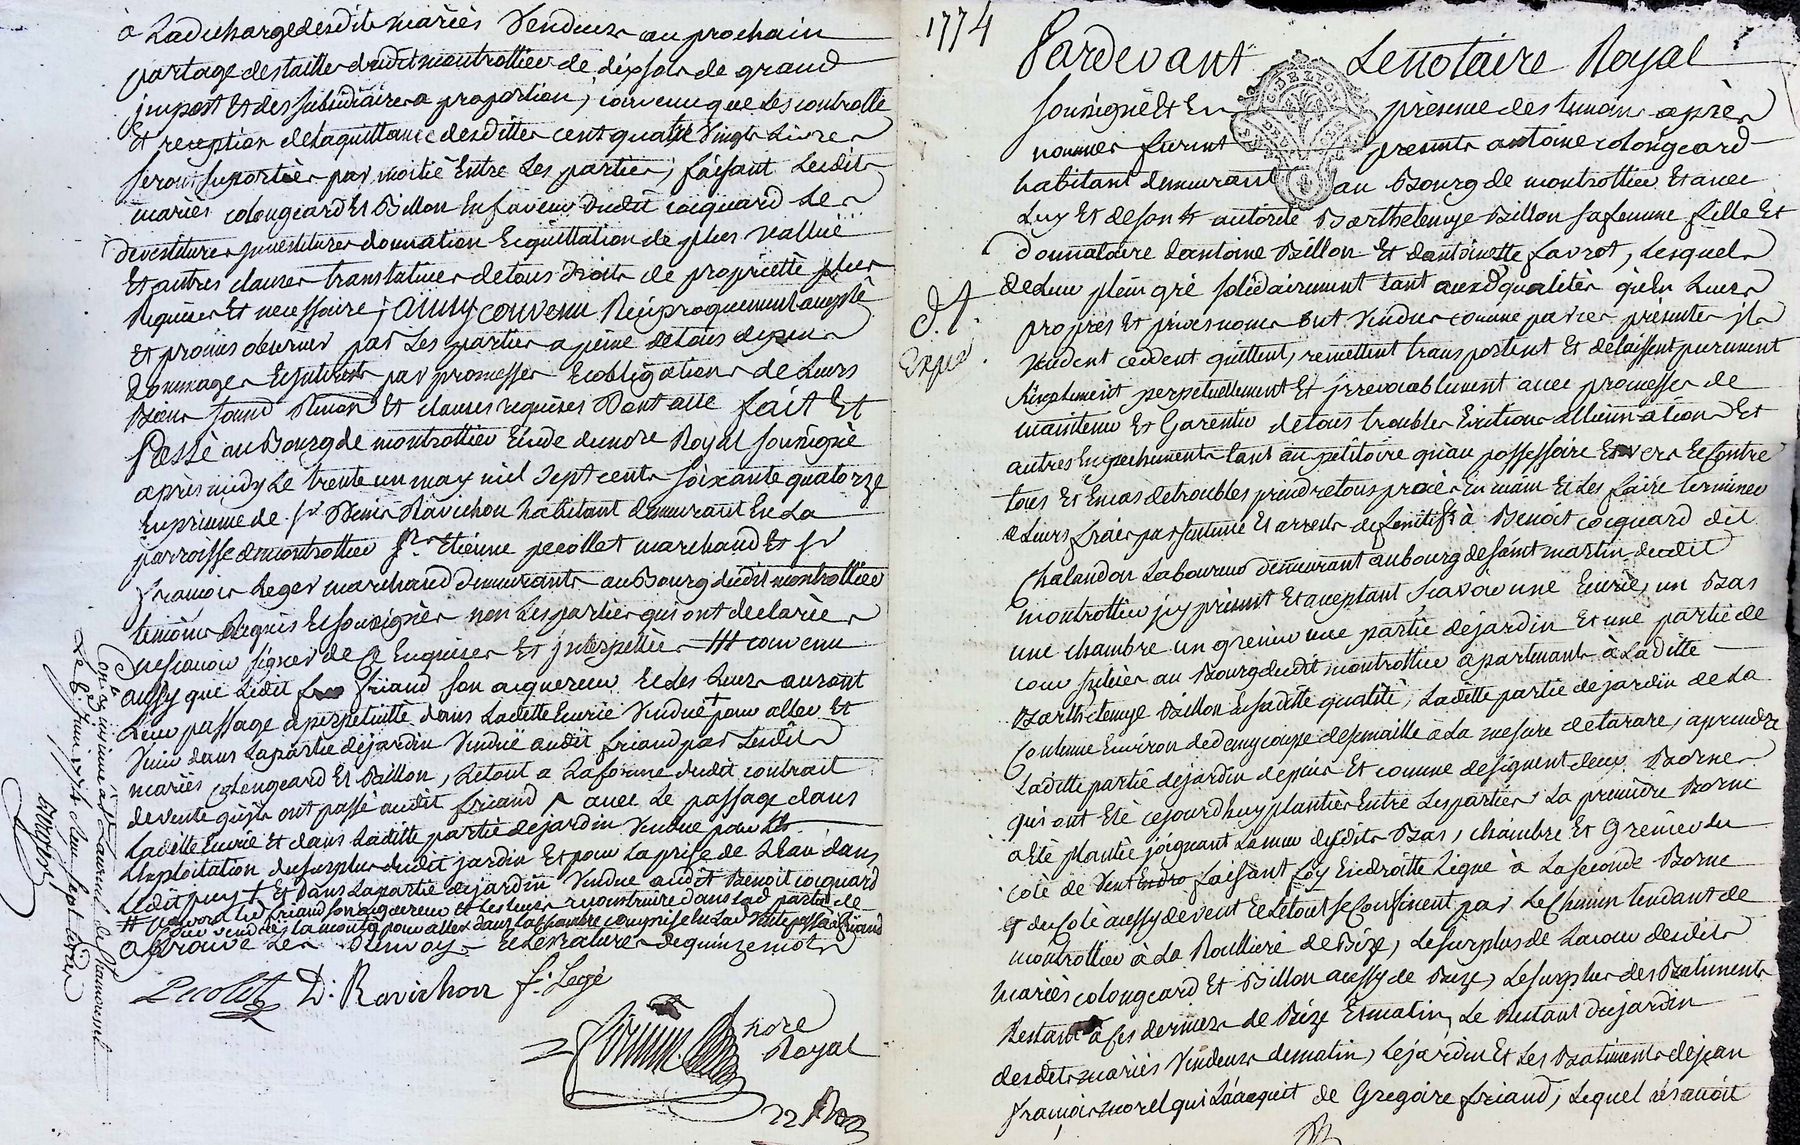 à La décharge desdits mariés Vendeurs au prochain
partage des tailles dudit montrottier de dix sols de grand
impost Et des subsidiaires a proportion, convenu que Les controlle
Et reception de la quittance desdittes cent quatre Vingt Livres
seront suportés par moitié Entre Les parties, faisant Lesdits
mariés colongeard Et Billon En faveur Dudit cocquard de
devestitures investitures donnation Ecquittation de plus vallüe
Et autres clauses translatives de tous droits de propriette plus
Requises Et necessaires, ainsy convenu Reciproquement accepté
Et promis observer par Les parties a peine de tous depens
dommages Et interets par promesses Et obligations de Leurs
Biens Et clauses requises Dont acte fait Et
Passé au Bourg de montrottier Etude du nore Royal soussigné
après midy Le trente un may mil Sept cents soixante quatorze
En presence de sr Denis Ravichon habitant demeurant En La
parroisse de montrottier sr Etienne pecollet marchand Et sr
françois Leger marchand demeurants au Bourg dudit montrottier
temoins Requis Et soussignés non Les parties qui ont declarées
ne sçavoir signer de ce Enquises Et interpellées convenu
aussy que Ledit friand son acquereur Et Les siens auront
Leur passage a perpetuitté dans Ladette Ecurie Vendue pour aller Et
Venir dans La partie de jardin Vendue audit friand par Lesdits
mariés colongeard Et Billon, Le tout a La forme dudit contrait
de vente qu'ils ont passé audit friand avec Le passage dans
Ladette Ecurie Et dans Ladette partie de jardin Vendue pour
L'exploitation du surplus dudit jardin Et pour La prise de L'eau dans
Ledit puy Et dans La partie de jardin Vendue audit Benoit cocquard
friand son acquereur Et Les siens dans partie de
pour aller dans La chambre comprise En La Vente passée a friand
approuvé Les Renvoys Et Les ratures de quinze mots
D. Ravichon f. Legé
nore
Royal
Le 6 juin 1774
1774
Pardevant Le notaire Royal
soussigné Et En presence des temoins après
nommés furent presents antoine colongeard
habitant demeurant au Bourg de montrottier Et avec
Luy Et de son autorité Barthelemye Billon sa femme fille Et
donnataire d'antoine Billon Et d'antoinette favrot, Lesquels
de Leur plein gré solidairement tant auxd qualités qu'En Leurs
propres Et privés noms ont Vendus comme par ces presentes ils
Vendent ceddent quittent, remettent transportent Et délaissent purement
simplement perpetuellement Et irrevocablement avec promesse de
maintenir Et Garentir de tous troubles Evictions alliennations Et
autres Empechements tant au petitoire qu'au possessoire Envers Et Contre
tous Et En cas de troubles prendre tous procès En main Et Les faire terminer
a Leurs frais par sentence Et arrests definitifs à Benoit cocquard dit
Chalandon Laboureur demeurant au bourg de saint martin dudit
montrottier icy présent Et aceptant Scavoir une Ecurie, un Bas
une chambre un grenier une partie de jardin Et une partie de
cour situés au Bourg dudit montrottier apartenants à Laditte
Barthelemye Billon En sadette qualité, Ladette partie de jardin de La
Contenue Environ de demy coupe de semaille à La mesure de tarare, aprendre
Ladette partie de jardin depuis Et comme designent deux Bornes
qui ont Eté cejourd'huy plantées Entre Lesparties La première Borne
a Eté plantée joignant Le mur desdits Bas, chambre Et Grenier du
coté de Vent faisant foy En droitte Ligne à La seconde Borne
du coté aussy de vent Et Le tout se Confinent par Le Chemin tendant de
montrottier à La Roulliere de Bize, Le surplus de La cour desdits
mariés colongeard Et Billon aussy de Bize, Le surplus des Batiments
Restant à ces derniers de Bize Et matin, Le Restant du jardin
desdits mariés Vendeurs de matin, Le jardin Et Les Batiments de jean
françois morel qui L'a acquit de Gregoire friand, Lequel
Expé